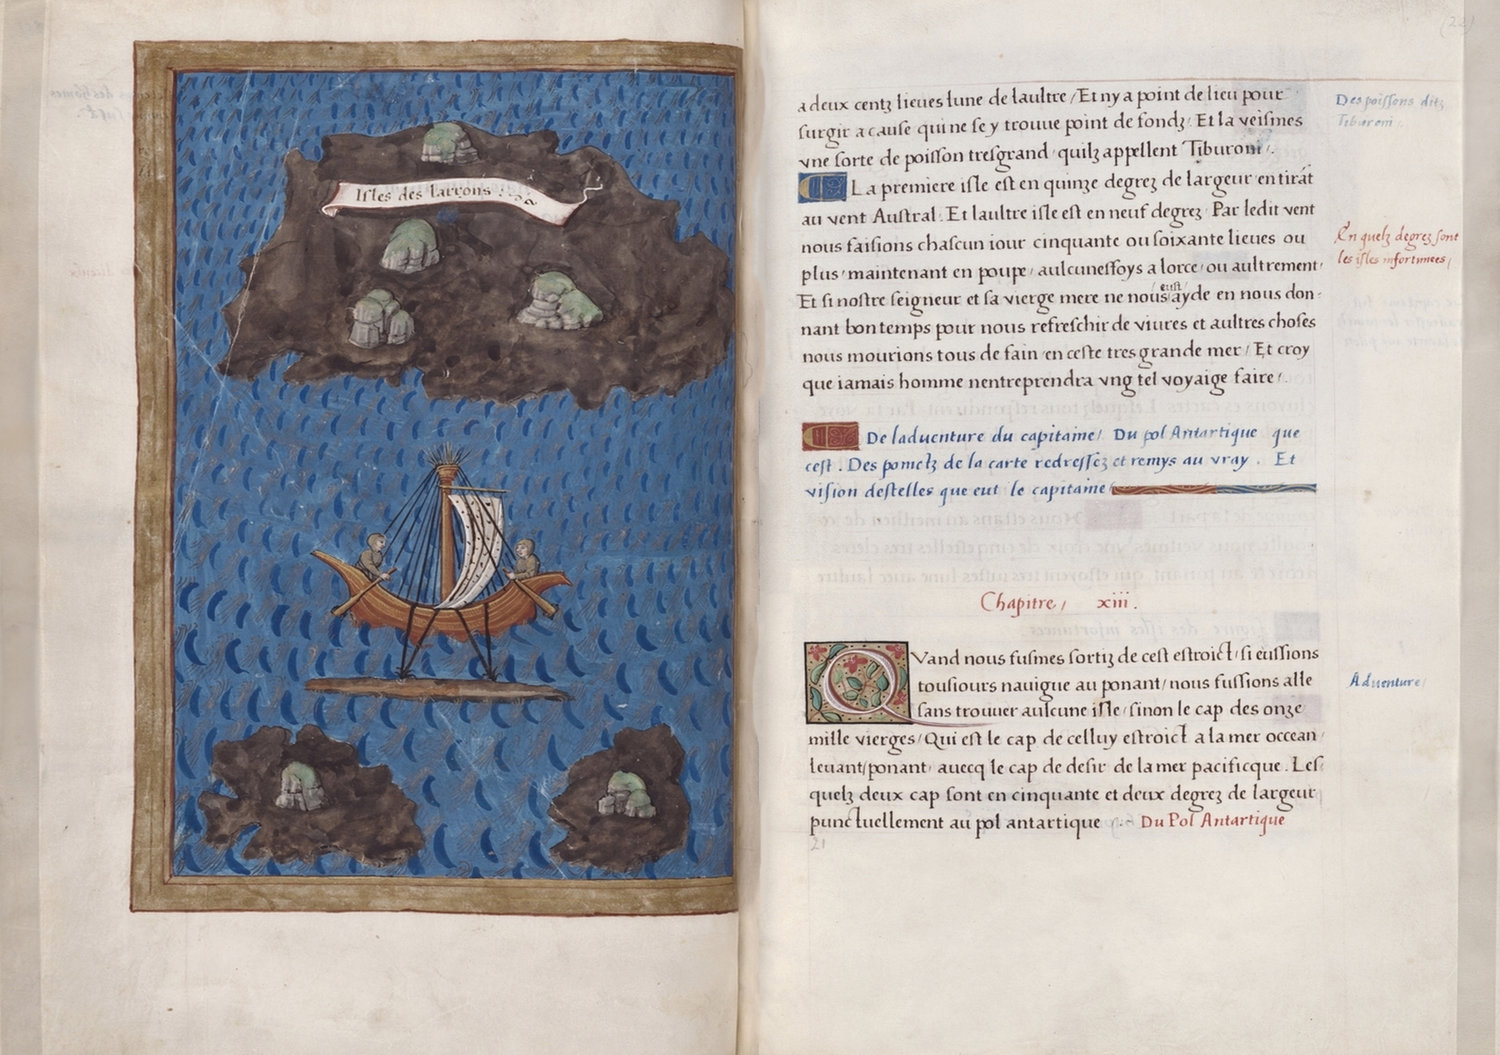 Isles des larrons
a deux centz lieues lune de laultre / Et ny a point de lieu pour
surgir a cause qui ne se y trouue point de fondz · Et la veismes
vne sorte de poisson tresgrand quilz appellent Tiburoni .
La premiere isle est en quinze degrez de largeur en tirāt
au vent Austral . Et laultre isle est en neuf degrez Par ledit vent
nous faisions chascun iour cinquante ou soixante lieues ou
plus / maintenant en poupe / aulcunesfoys a lorce / ou aultrement
Et si nostre seigneur et sa vierge mere ne nous eust ayde en nous don-
nant bon temps pour nous refreschir de viures et aultres choses
nous mourions tous de fain en ceste tres grande mer / Et croy
que iamais homme nentreprendra vng tel voyaige faire / .
De laduenture du capitaine / Du pol Antartique que
cest . Des poinctz de la carte redressez et remys au vray . Et
vision destelles que eut le capitaine
Chapitre / xiii .
Quand nous fusmes sortiz de cest estroict / si eussions
tousiours nauigue au ponant / nous fussions alle
sans trouuer aulcune isle / sinon le cap des onze
mille vierges / Qui est le cap de celluy estroict a la mer occean
leuant / ponant auecq le cap de desir de la mer pacificque . Les
quelz deux cap sont en cinquante et deux degrez de largeur
punctuellement au pol antartique Du Pol Antartique
21
Des poissons ditz
Tiburoni .
En quelz degrez sont
les isles infortunees /
Aduenture /